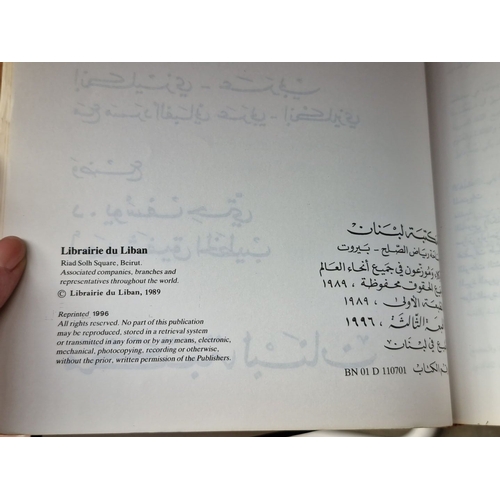 Librairie du Liban
Riad Solh Square, Beirut.
Associated companies, branches and
representatives throughout the world.
© Librairie du Liban, 1989
Reprinted 1996
All rights reserved. No part of this publication
may be reproduced, stored in a retrieval system
or transmitted in any form or by any means, electronic,
mechanical, photocopying, recording or otherwise,
without the prior, written permission of the Publishers.
كتبة لبنان
رياض الصلح - بيروت
وموزعون في جميع أنحاء العالم
الحقوق محفوظة ، ١٩٨٩
الأولى ، ١٩٨٩
الثالثة ، ١٩٩٦
في لبنان
الكتاب BN 01 D 110701